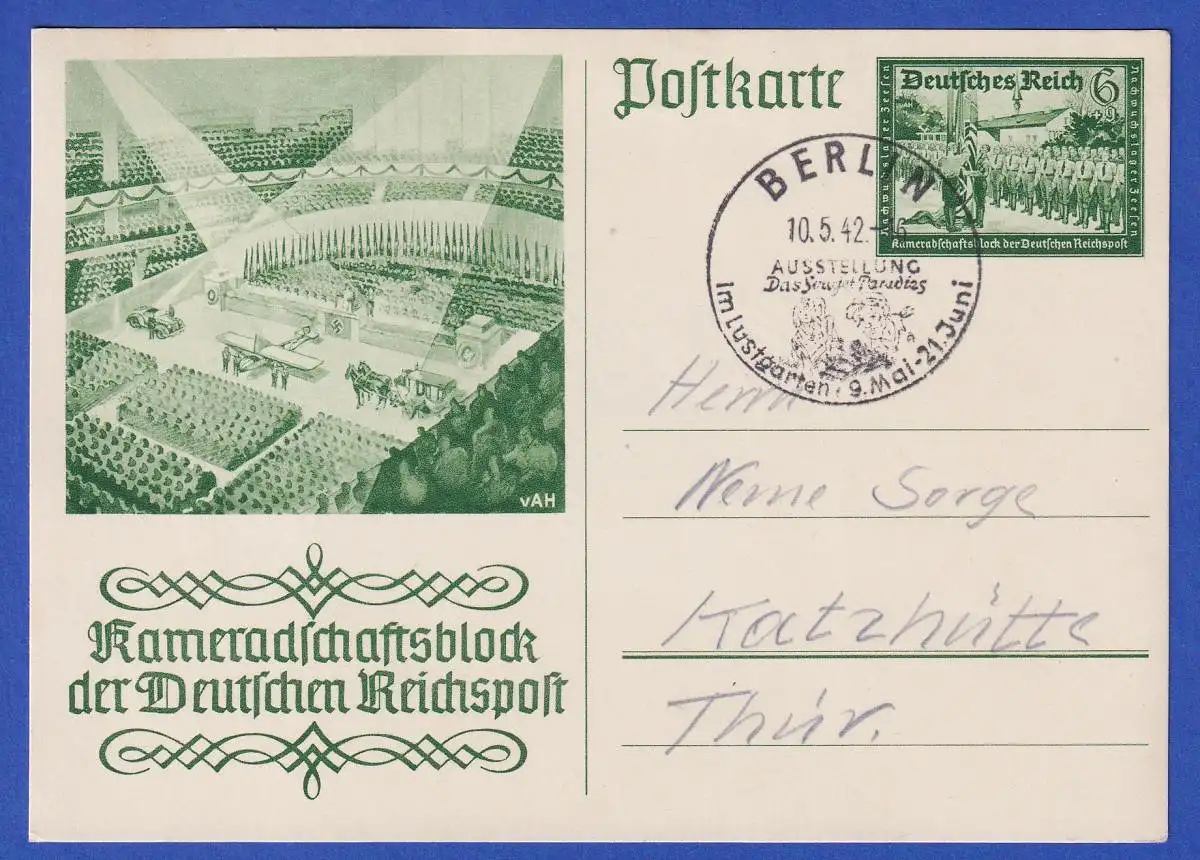 vAH
Kameradschaftsblock
der Deutschen Reichspost
Postkarte
Deutsches Reich 6
+9
Nachwuchslager Zeesen
Nachwuchslager Zeesen
Kameradschaftsblock der Deutschen Reichspost
BERLIN
10.5.42.-16
AUSSTELLUNG
Das Sowjet Paradies
im Lustgarten, 9. Mai-21. Juni
Herrn
Sorge
Katzhütte
Thür.